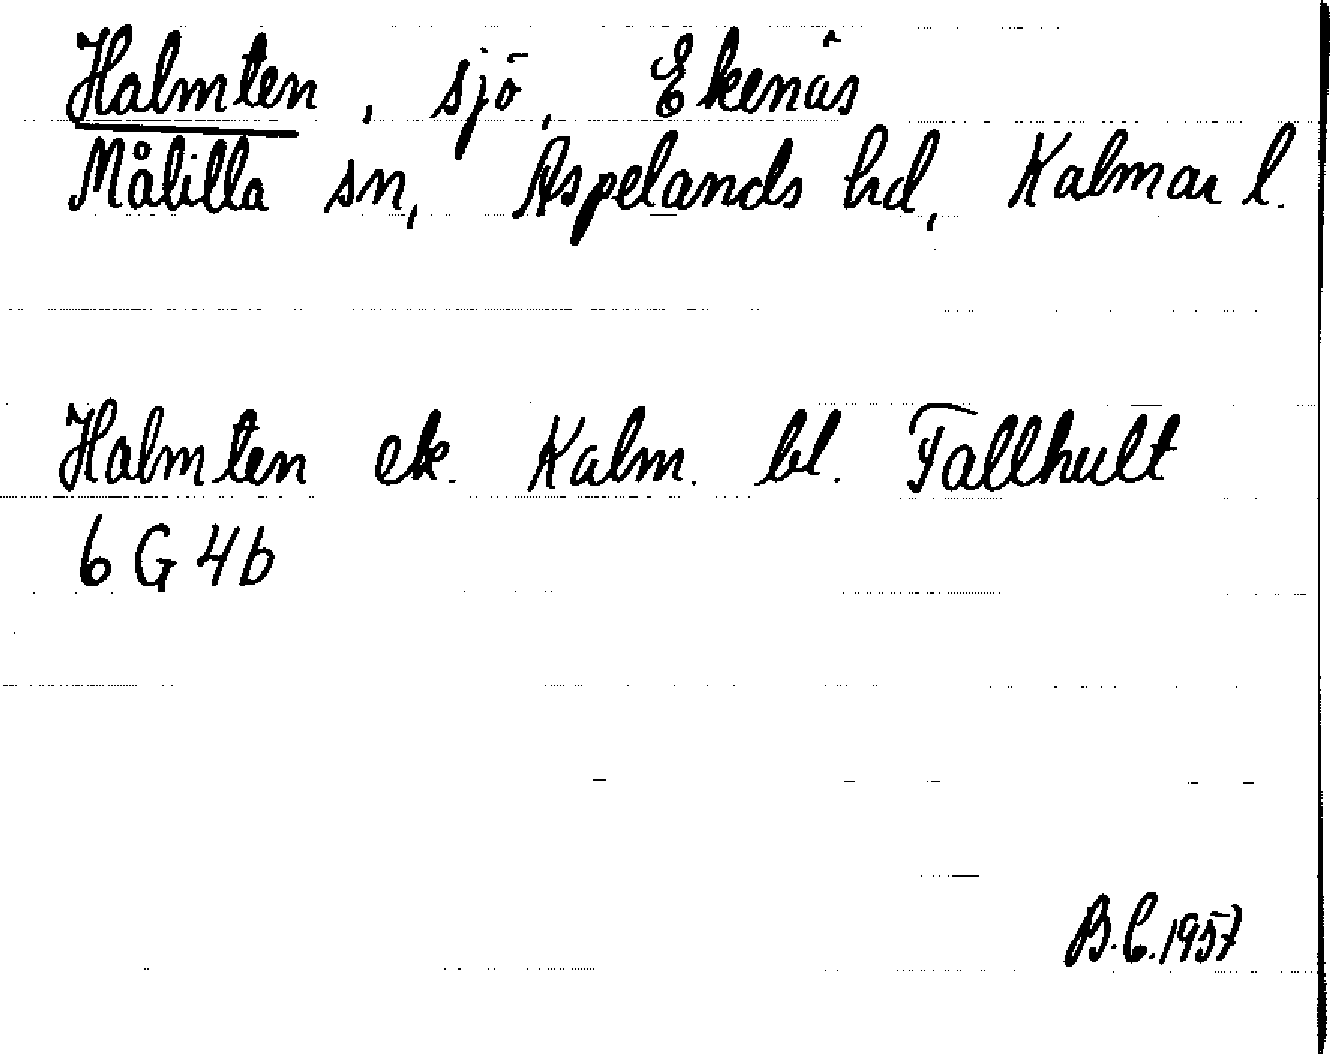 Halmten, sjö, Ekenäs
Målilla sn, Aspelands hd, Kalmar l.
Halmten ek. Kalm. bl. Fallhult
6 G 4b
B.C. 1957